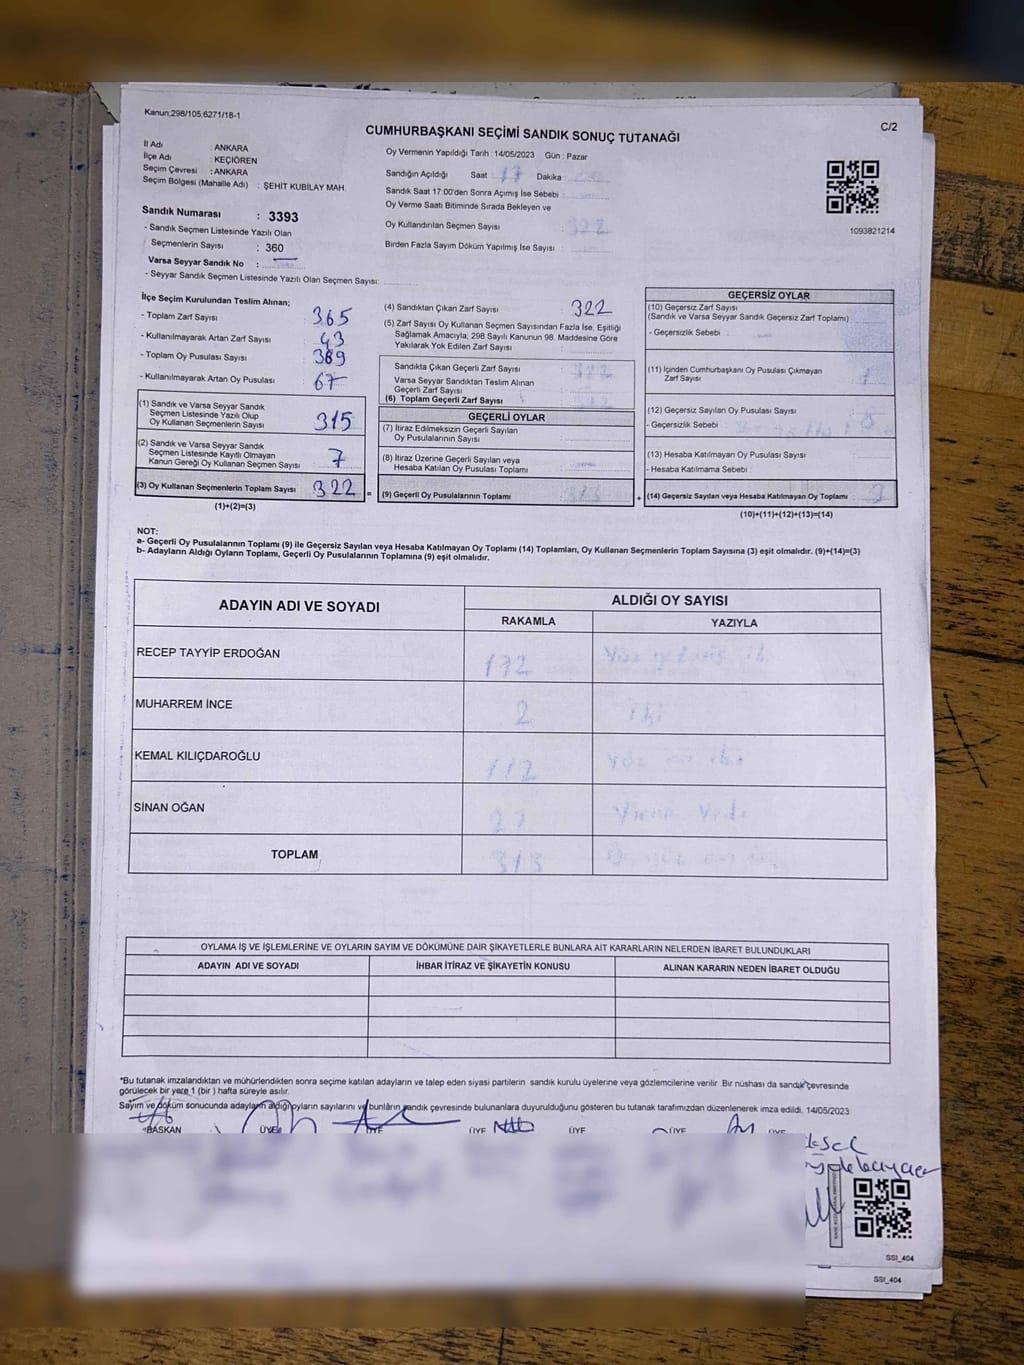 Kanun;298/105,6271/18-1
C/2
CUMHURBAŞKANI SEÇİMİ SANDIK SONUÇ TUTANAĞI
İl Adı : ANKARA
İlçe Adı : KEÇİÖREN
Seçim Çevresi : ANKARA
Seçim Bölgesi (Mahalle Adı) : ŞEHİT KUBİLAY MAH.
Sandık Numarası : 3393
- Sandık Seçmen Listesinde Yazılı Olan
Seçmenlerin Sayısı : 360
Varsa Seyyar Sandık No :
- Seyyar Sandık Seçmen Listesinde Yazılı Olan Seçmen Sayısı:
Oy Vermenin Yapıldığı Tarih :14/05/2023 Gün : Pazar
Sandığın Açıldığı Saat 17 Dakika
Sandık Saat 17:00'den Sonra Açımış İse Sebebi :
Oy Verme Saati Bitiminde Sırada Bekleyen ve
Oy Kullandırılan Seçmen Sayısı : 322
Birden Fazla Sayım Döküm Yapılmış İse Sayısı :
1093821214
İlçe Seçim Kurulundan Teslim Alınan;
- Toplam Zarf Sayısı : 365
- Kullanılmayarak Artan Zarf Sayısı : 43
- Toplam Oy Pusulası Sayısı : 389
- Kullanılmayarak Artan Oy Pusulası : 67
(1) Sandık ve Varsa Seyyar Sandık
Seçmen Listesinde Yazılı Olup
Oy Kullanan Seçmenlerin Sayısı : 315
(2) Sandık ve Varsa Seyyar Sandık
Seçmen Listesinde Kayıtlı Olmayan
Kanun Gereği Oy Kullanan Seçmen Sayısı : 7
(3) Oy Kullanan Seçmenlerin Toplam Sayısı : 322 =
(1)+(2)=(3)
(4) Sandıktan Çıkan Zarf Sayısı : 322
(5) Zarf Sayısı Oy Kullanan Seçmen Sayısından Fazla İse, Eşitliği
Sağlamak Amacıyla, 298 Sayılı Kanunun 98. Maddesine Göre
Yakılarak Yok Edilen Zarf Sayısı :
Sandıkta Çıkan Geçerli Zarf Sayısı : 322
Varsa Seyyar Sandıktan Teslim Alınan
Geçerli Zarf Sayısı :
(6) Toplam Geçerli Zarf Sayısı : 322
GEÇERLİ OYLAR
(7) İtiraz Edilmeksizin Geçerli Sayılan
Oy Pusulalarının Sayısı :
(8) İtiraz Üzerine Geçerli Sayılan veya
Hesaba Katılan Oy Pusulası Toplamı :
(9) Geçerli Oy Pusulalarının Toplamı : 313 +
GEÇERSİZ OYLAR
(10) Geçersiz Zarf Sayısı
(Sandık ve Varsa Seyyar Sandık Geçersiz Zarf Toplamı) :
- Geçersizlik Sebebi :
(11) İçinden Cumhurbaşkanı Oy Pusulası Çıkmayan
Zarf Sayısı : 1
(12) Geçersiz Sayılan Oy Pusulası Sayısı : 8
- Geçersizlik Sebebi :
(13) Hesaba Katılmayan Oy Pusulası Sayısı :
- Hesaba Katılmama Sebebi :
(14) Geçersiz Sayılan veya Hesaba Katılmayan Oy Toplamı :
(10)+(11)+(12)+(13)=(14)
NOT:
a- Geçerli Oy Pusulalarının Toplamı (9) ile Geçersiz Sayılan veya Hesaba Katılmayan Oy Toplamı (14) Toplamları, Oy Kullanan Seçmenlerin Toplam Sayısına (3) eşit olmalıdır. (9)+(14)=(3)
b- Adayların Aldığı Oyların Toplamı, Geçerli Oy Pusulalarının Toplamına (9) eşit olmalıdır.
ADAYIN ADI VE SOYADI ALDIĞI OY SAYISI
RAKAMLA YAZIYLA
RECEP TAYYİP ERDOĞAN 172 Yüz yetmiş iki
MUHARREM İNCE 2 iki
KEMAL KILIÇDAROĞLU 112 Yüz on iki
SİNAN OĞAN 27 Yirmi Yedi
TOPLAM 313
OYLAMA İŞ VE İŞLEMLERİNE VE OYLARIN SAYIM VE DÖKÜMÜNE DAİR ŞİKAYETLERLE BUNLARA AİT KARARLARIN NELERDEN İBARET BULUNDUKLARI
ADAYIN ADI VE SOYADI İHBAR İTİRAZ VE ŞİKAYETİN KONUSU ALINAN KARARIN NEDEN İBARET OLDUĞU
*Bu tutanak imzalandıktan ve mühürlendikten sonra seçime katılan adayların ve talep eden siyasi partilerin sandık kurulu üyelerine veya gözlemcilerine verilir. Bir nüshası da sandık çevresinde
görülecek bir yere 1 (bir ) hafta süreyle asılır.
Sayım ve döküm sonucunda adayların aldığı oyların sayılarını ve bunların sandık çevresinde bulunanlara duyurulduğunu gösteren bu tutanak tarafımızdan düzenlenerek imza edildi. 14/05/2023
BAŞKAN ÜYE ÜYE ÜYE ÜYE ÜYE ÜYE
SSI_404
SSI_404